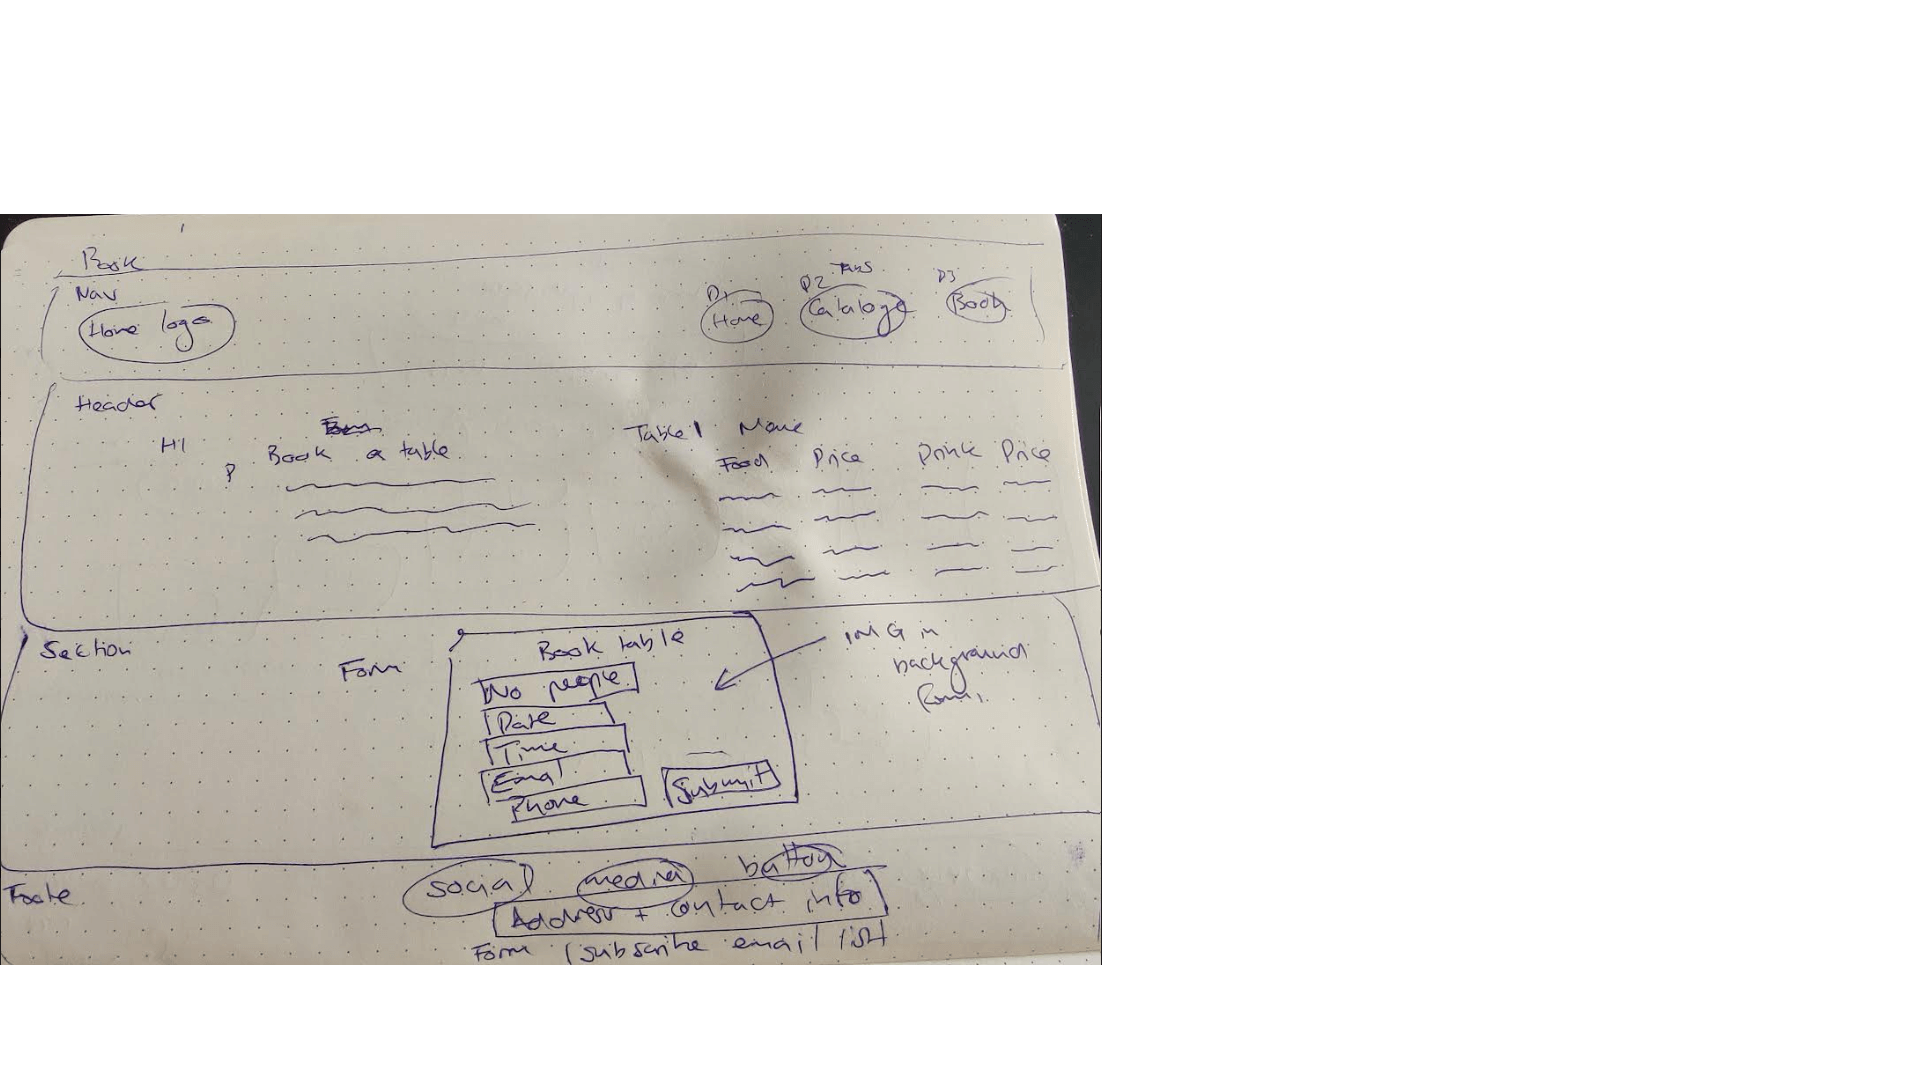 Book
Nav
Home logo
P1 P2 Tabs P3
Home Cataloge Book
Header
H1 Book a table
P
Table 1
Food Price Drink Price
Section
Form
Book table
No people
Date
Time
Email
Phone
Submit
IMG in
background
Form
Foote
Social media button
Address + contact info
Form (subscribe email list